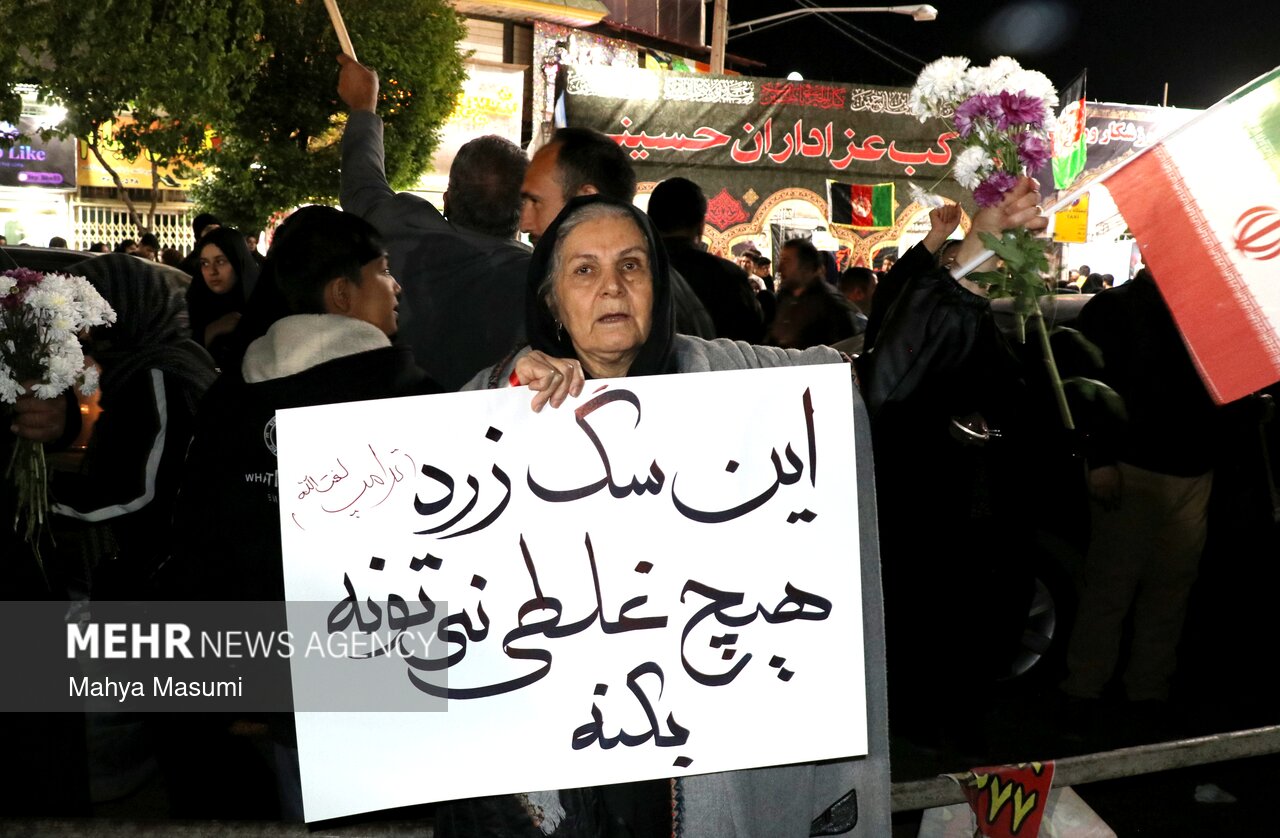 این سگ زرد
(ترامپ لعنت‌الله)
هیچ غلطی نمی تونه
بکنه
کب عزاداران حسینی
MEHR NEWS AGENCY
Mahya Masumi
Like